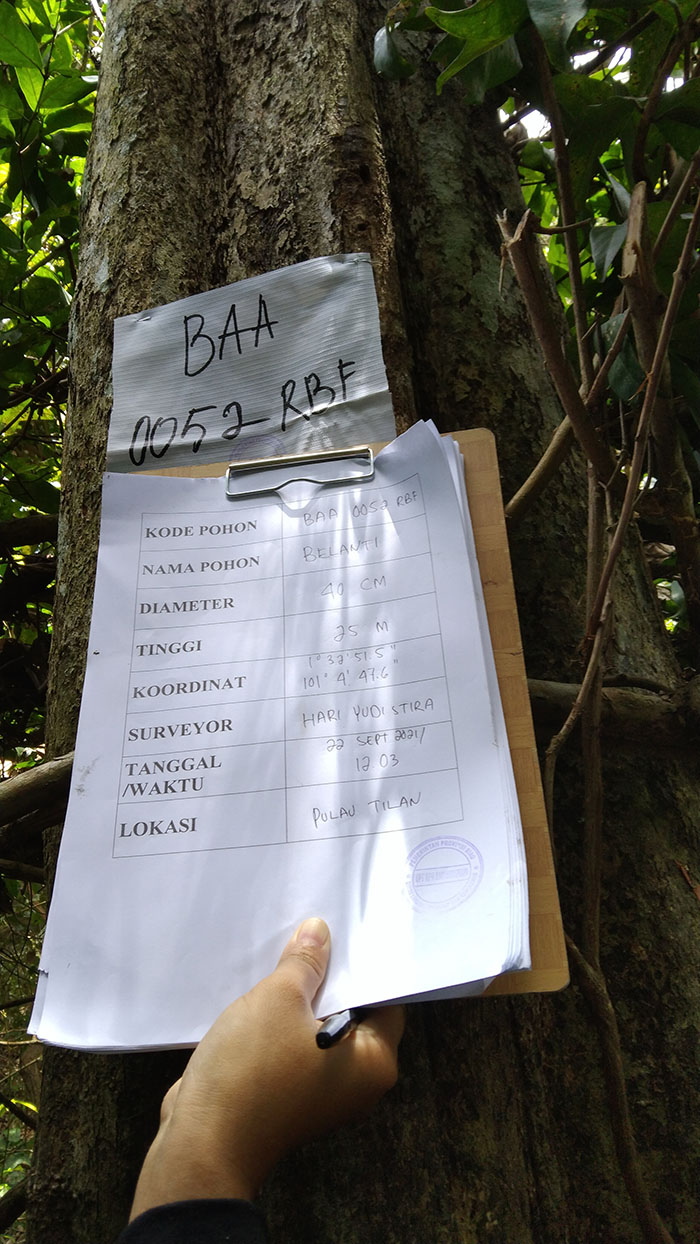 BAA
0052 RBF
KODE POHON BAA 0052 RBF
NAMA POHON BELANTI
DIAMETER 40 CM
TINGGI 25 M
KOORDINAT 1° 32' 51.5"
101° 4' 47.6"
SURVEYOR HARI YUDISTIRA
TANGGAL 22 SEPT 2021/
/WAKTU 12 03
LOKASI PULAU TILAN